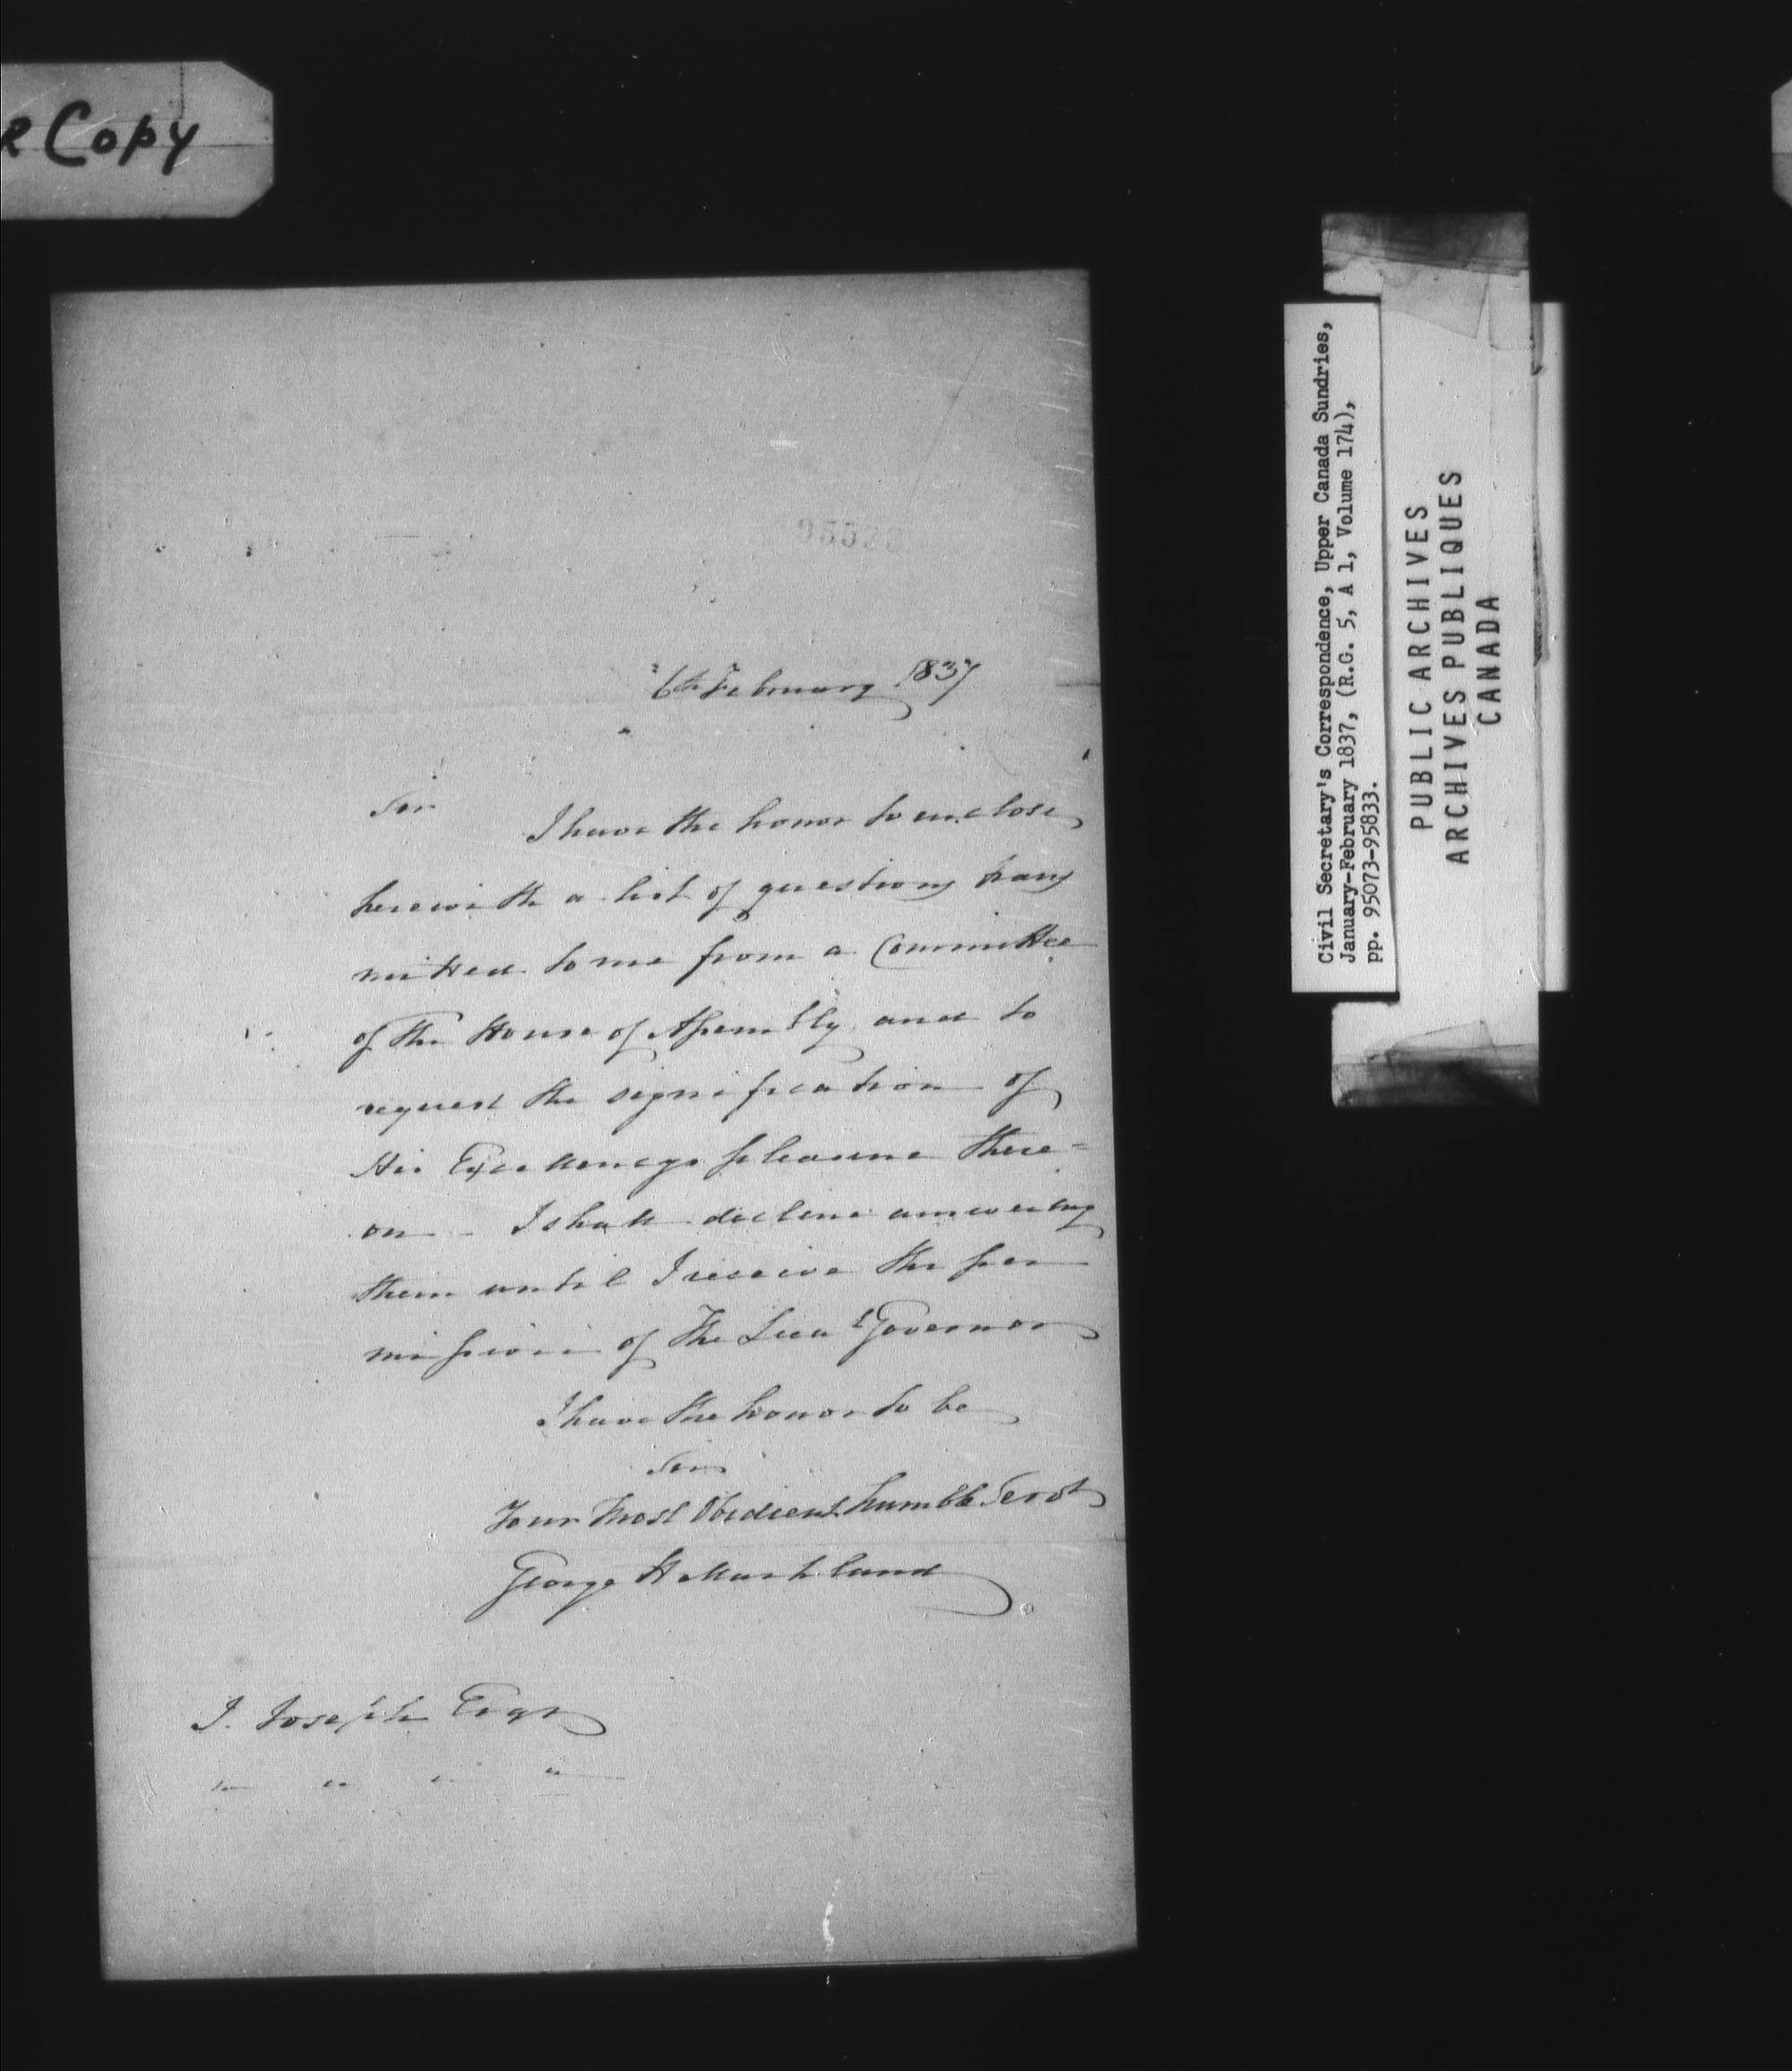 Copy
6th February 1837
Sir
I have the honor to enclose
herewith a list of questions trans
mitted to me from a Committee
of the House of Assembly and to
request the signification of
His Excellencys pleasure there=
on - I shall decline answering
them until I receive the per
mission of the Lieut Governor
I have the honor to be
Sir
Your Most Obedient humble Servt
George H Markland
J. Joseph Esqr
" " " "
Civil Secretary's Correspondence, Upper Canada Sundries,
January-February 1837, (R.G. 5, A 1, Volume 174),
pp. 95073-95833.
PUBLIC ARCHIVES
ARCHIVES PUBLIQUES
CANADA